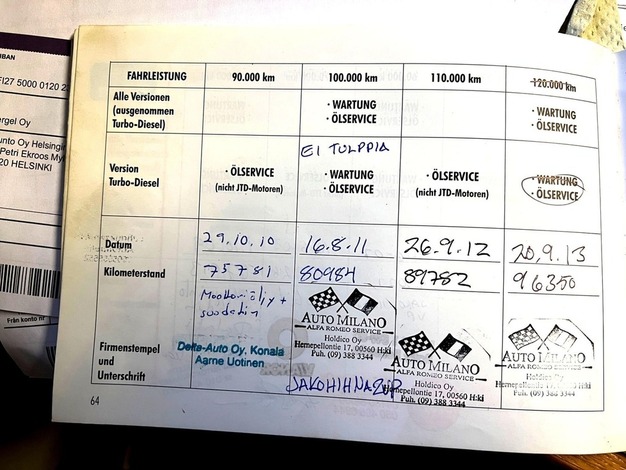 IBAN
FI27 5000 0120 2
argel Oy
unto Oy Helsing
Petri Ekroos My
20 HELSINKI
Från konto nr
FAHRLEISTUNG 90.000 km 100.000 km 110.000 km 120.000 km
Alle Versionen
(ausgenommen
Turbo-Diesel)
· WARTUNG
· ÖLSERVICE
· WARTUNG
· ÖLSERVICE
EI TULPPIA
Version
Turbo-Diesel
· ÖLSERVICE
(nicht JTD-Motoren)
· WARTUNG
· ÖLSERVICE
· ÖLSERVICE
(nicht JTD-Motoren)
· WARTUNG
· ÖLSERVICE
Datum 29.10.10 16.8.11 26.9.12 20.9.13
Kilometerstand 75781 80984 89782 96350
Moottoriöljy +
suodatin
Firmenstempel
und
Unterschrift
Delta-Auto Oy, Konala
Aarne Uotinen
AUTO MILANO
ALFA ROMEO SERVICE
Holdico Oy
Hernepellontie 17, 00560 H:ki
Puh. (09) 388 3344
JAKOHIHNA
AUTO MILANO
ALFA ROMEO SERVICE
Holdico Oy
Hernepellontie 17, 00560 H:ki
Puh. (09) 388 3344
AUTO MILANO
ALFA ROMEO SERVICE
Holdico Oy
Hernepellontie 17, 00560 H:ki
Puh. (09) 388 3344
64